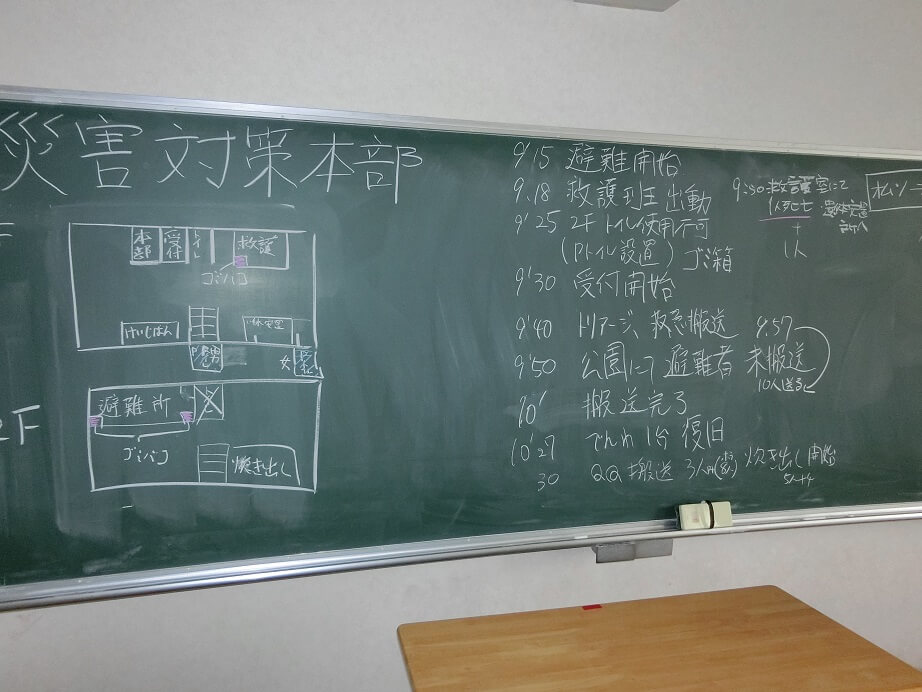 災害対策本部
本部 受付 トイレ 救護
ゴミバコ
けいじばん
男 女
2F
避難所
ゴミバコ
炊き出し
9'15 避難開始
9.18 救護班 出動
9'25 2F トイレ使用不可
(Pトイレ設置) ゴミ箱
9'30 受付開始
9'40 トリアージ、救急搬送
9'50 公園にて避難者 未搬送
9.57
10人送る
10' 搬送完了
10'27 でんわ1台 復旧
30 QQ搬送 3人 炊き出し開始
9:50 救護室にて
1人死亡
オムツ